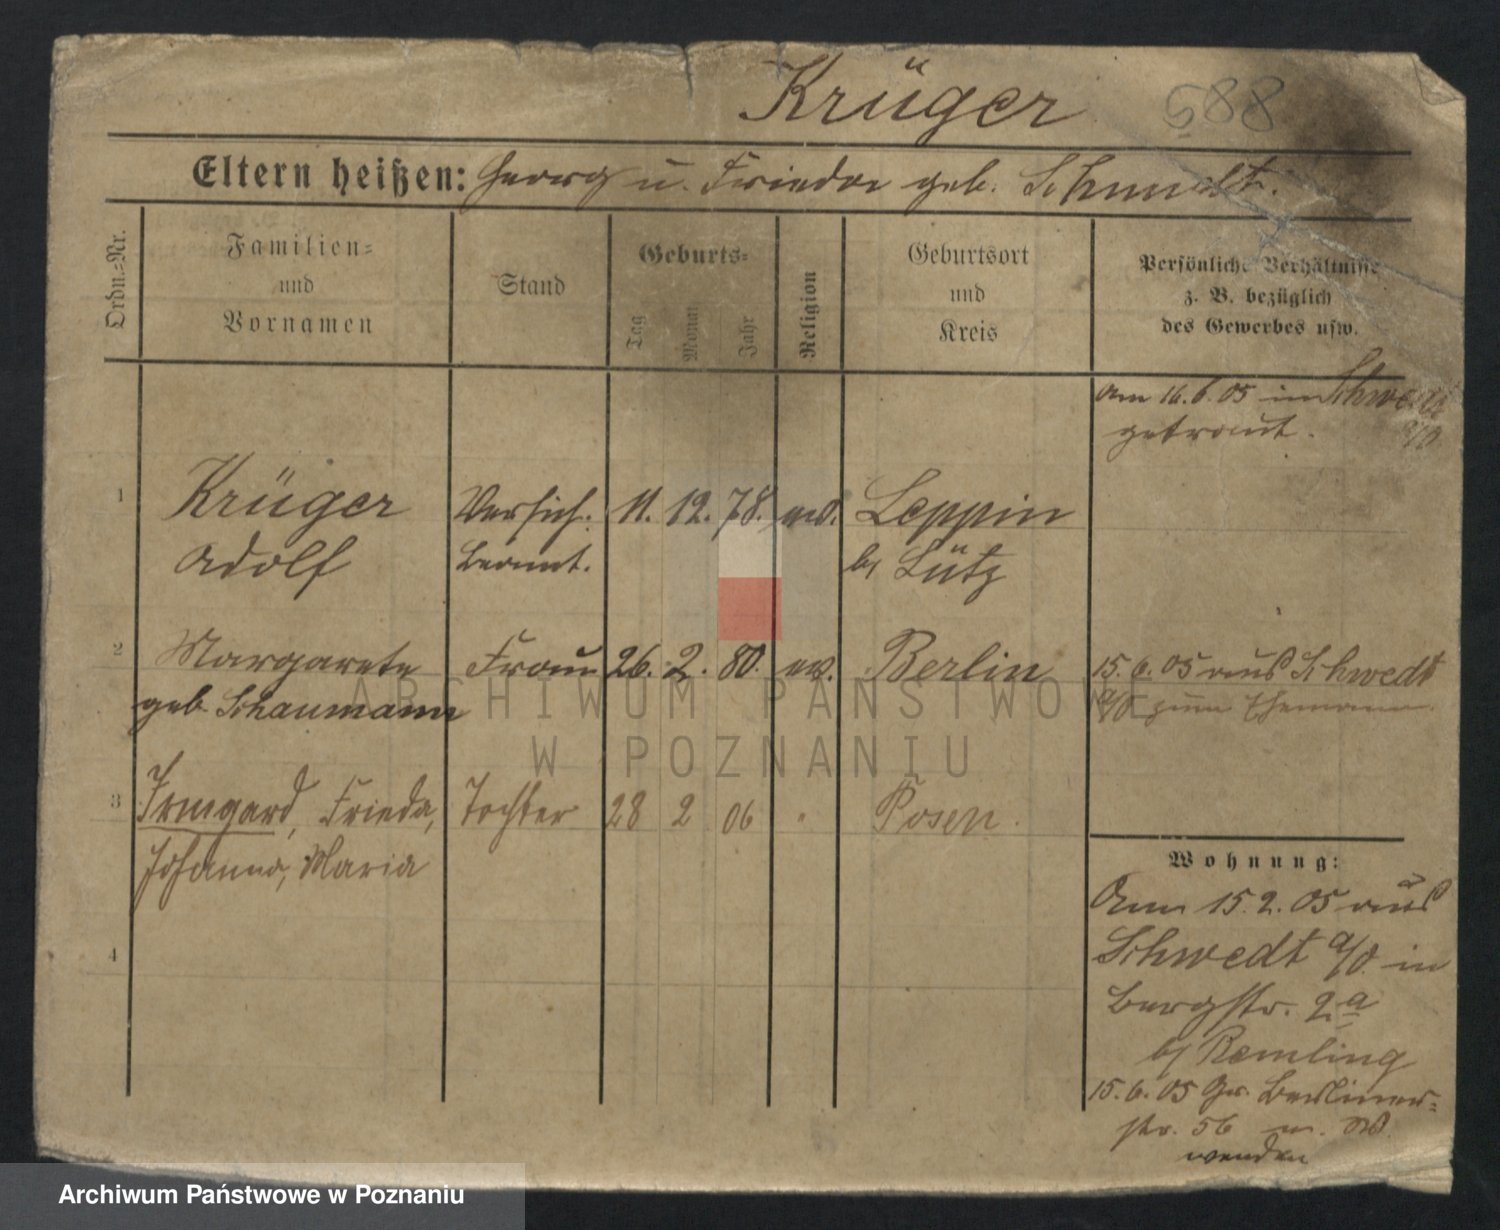 Krüger 588
Eltern heißen: Georg u. Frieda geb. Schmidt.
Ordn.=Nr.
Familien=
und
Vornamen
Stand
Geburts=
Tag
Monat
Jahr
Religion
Geburtsort
und
Kreis
Persönliche Verhältnisse
z. B. bezüglich
des Gewerbes usw.
Am 16.6.05 in Schwedt
a/O
getraut.
1 Krüger Versich. 11. 12. 78. ev. Leppin
Adolf beamt. b/ Lütz
2 Margarete Frau 26. 2. 80. ev. Berlin 15.6.05 aus Schwedt
geb. Schaumann a/O zum Ehemann.
3 Irmgard, Frieda, Tochter 28 2 06 " Posen.
Johanna, Maria
4
Wohnung:
Am 15.2.05 aus
Schwedt a/O. in
Bergstr. 2a
b/ Remling
15.6.05 Gr. Berliner=
str. 56
wenden
ARCHIWUM PAŃSTWOWE
W POZNANIU
Archiwum Państwowe w Poznaniu